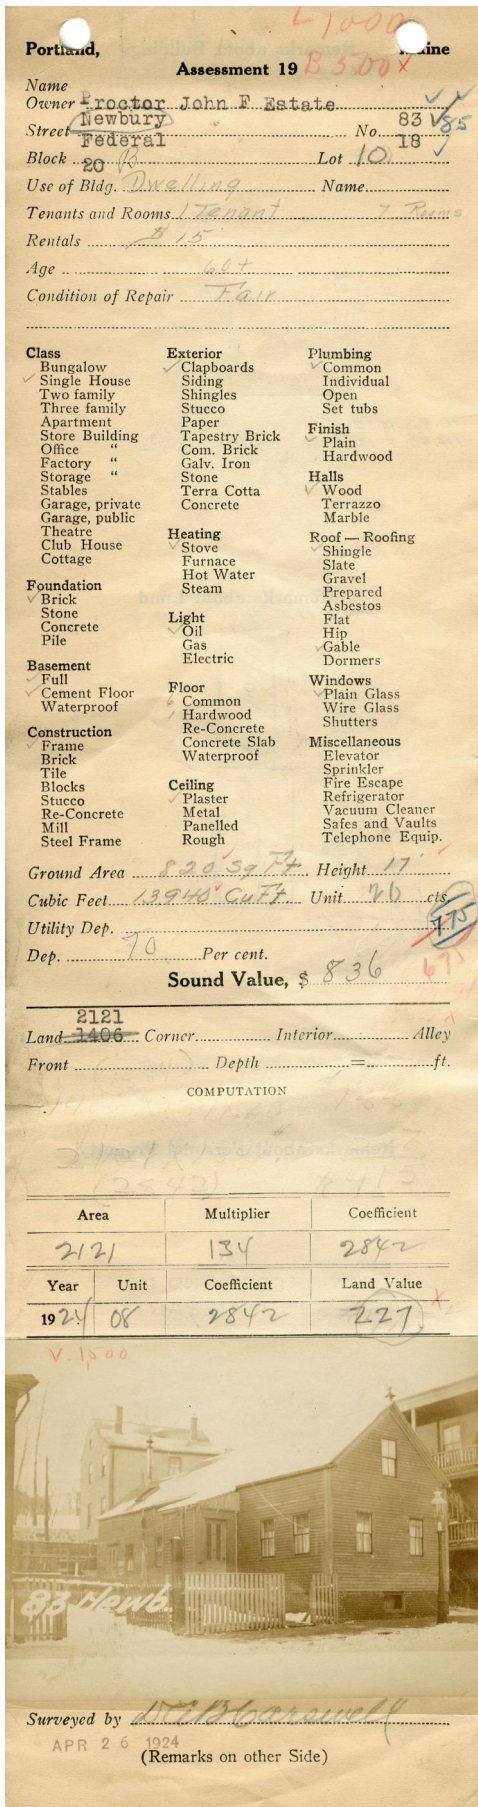 L 1000
Portland, Maine
Assessment 19
B 500 X
Name
Owner Proctor John F Estate
Newbury 83 85
Street No.
Federal 18
Block 20 B Lot 10
Use of Bldg. Dwelling Name
Tenants and Rooms 1 Tenant 7 Rooms
Rentals $15
Age 60+
Condition of Repair Fair
Class
Bungalow
Single House
Two family
Three family
Apartment
Store Building
Office "
Factory "
Storage "
Stables
Garage, private
Garage, public
Theatre
Club House
Cottage
Foundation
Brick
Stone
Concrete
Pile
Basement
Full
Cement Floor
Waterproof
Construction
Frame
Brick
Tile
Blocks
Stucco
Re-Concrete
Mill
Steel Frame
Exterior
Clapboards
Siding
Shingles
Stucco
Paper
Tapestry Brick
Com. Brick
Galv. Iron
Stone
Terra Cotta
Concrete
Heating
Stove
Furnace
Hot Water
Steam
Light
Oil
Gas
Electric
Floor
6 Common
1 Hardwood
Re-Concrete
Concrete Slab
Waterproof
Ceiling
Plaster
Metal
Panelled
Rough
Plumbing
Common
Individual
Open
Set tubs
Finish
Plain
Hardwood
Halls
Wood
Terrazzo
Marble
Roof — Roofing
Shingle
Slate
Gravel
Prepared
Asbestos
Flat
Hip
Gable
Dormers
Windows
Plain Glass
Wire Glass
Shutters
Miscellaneous
Elevator
Sprinkler
Fire Escape
Refrigerator
Vacuum Cleaner
Safes and Vaults
Telephone Equip.
Ground Area 820 Sq Ft. Height 17
Cubic Feet 13940 Cu Ft. Unit 20 cts.
Utility Dep. 775
Dep. 70 Per cent. 675
Sound Value, $ 836
2121
Land 1406 Corner Interior Alley
Front Depth = ft.
COMPUTATION
Area Multiplier Coefficient
2121 134 2842
Year Unit Coefficient Land Value
1924 08 2842 227 X
V-1,500
83 Newb.
Surveyed by
APR 26 1924
(Remarks on other Side)